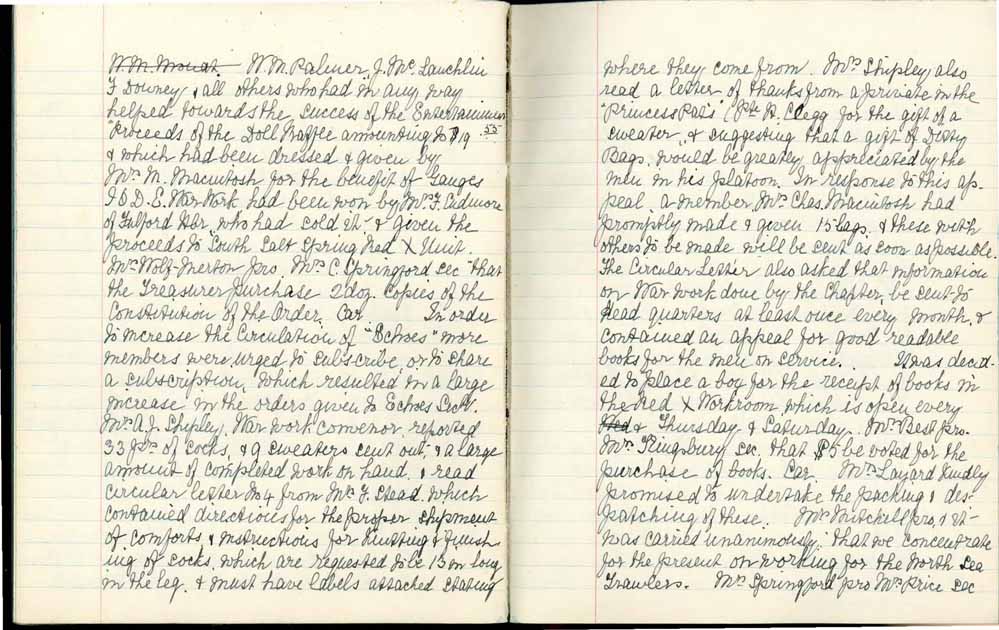 W.M. Mouat. W.M. Palmer, J. Mc. Lauchlin
F Downey, & all others who had in any way
helped towards the success of the Entertainment
Proceeds of the Doll Raffle amounting to $19.55
& which had been dressed & given by
Mrs M. Macintosh for the benefit of Ganges
I O.D.E. War Work had been won by Mrs F. Cudmore
of Fulford Hbr. who had sold it & given the
proceeds to South Salt Spring Red X Unit.
Mrs Wolf-Merton pro. Mrs C. Springford sec "that
the Treasurer purchase 2 doz. Copies of the
Constitution of the Order. Car In order
to increase the Circulation of "Echoes" more
members were urged to subscribe, or to share
a subscription, which resulted in a large
increase in the orders given to Echoes Sect'y.
Mrs A.J. Shipley, War work convenor, reported
33 prs of socks, & 9 sweaters sent out, & a large
amount of completed work on hand. & read
circular letter No 4 from Mrs F. Stead, which
contained directions for the proper shipment
of comforts & instructions for knitting & finish
ing of socks, which are requested to be 13 in long
in the leg. & must have labels attached stating
where they come from. Mrs Shipley also
read a letter of thanks from a private in the
"Princess Pat's" (Pte H. Clegg for the gift of a
sweater, & suggesting that a gift of Ditty
Bags, would be greatly appreciated by the
men in his platoon. In response to this ap-
peal a member, Mrs Chas. Macintosh had
promptly made & given 15 bags. & these with
others to be made will be sent as soon as possible.
The Circular Letter also asked that information
on War work done by the Chapter, be sent to
Head quarters at least once every month, &
contained an appeal for good readable
books for the men on service. It was decid-
ed to place a box for the receipt of books in
the Red X Workroom, which is open every
& Thursday & Saturday. Mrs Best pro.
Mrs Kingsbury sec. that $5 be voted for the
purchase of books. Car. Mrs Layard kindly
promised to undertake the packing & des-
patching of these. Mrs Mitchell pro, & it
was carried unanimously. that we concentrate
for the present on working for the North Sea
Trawlers. Mrs Springford pro Mrs Price sec